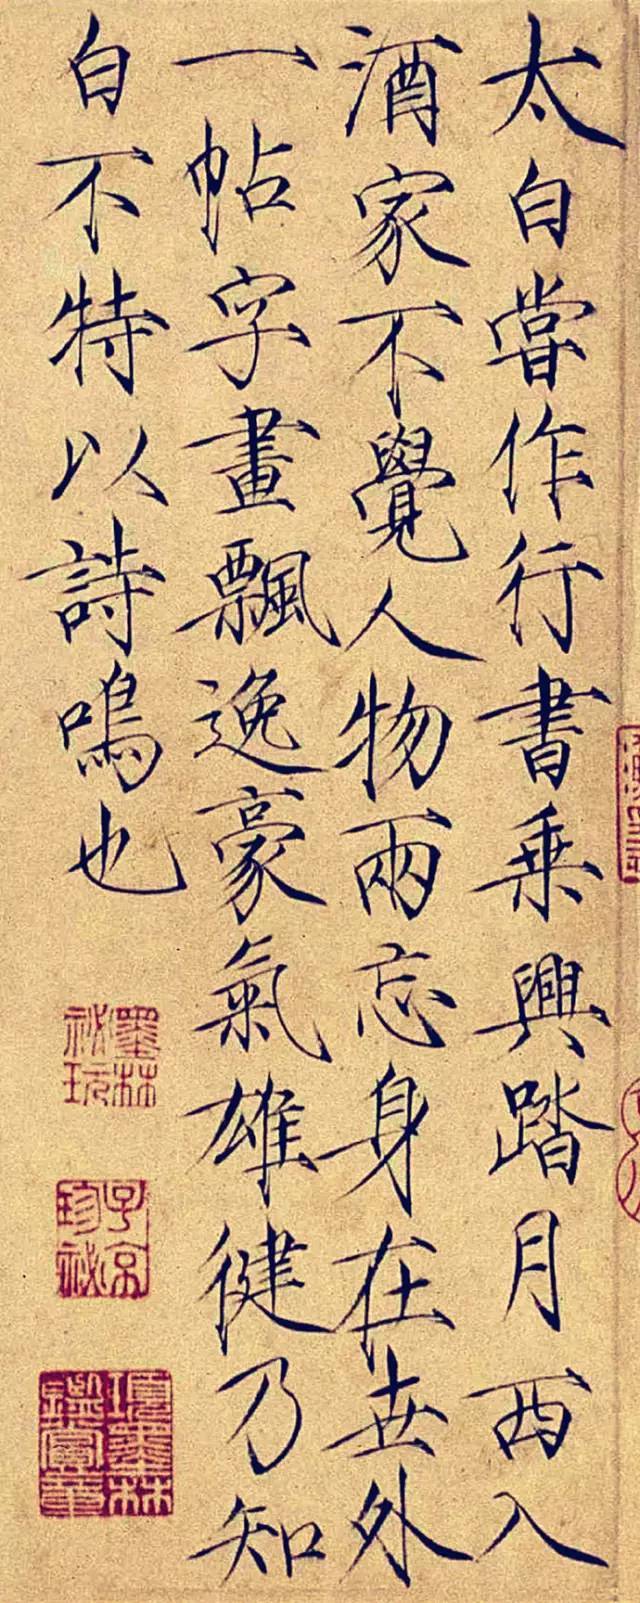 太白嘗作行書乗興踏月西入
酒家不覺人物兩忘身在世外
一帖字畫飄逸豪氣雄健乃知
白不特以詩鳴也
墨林
祕玩
子京
珍祕
項墨林
鑑賞章